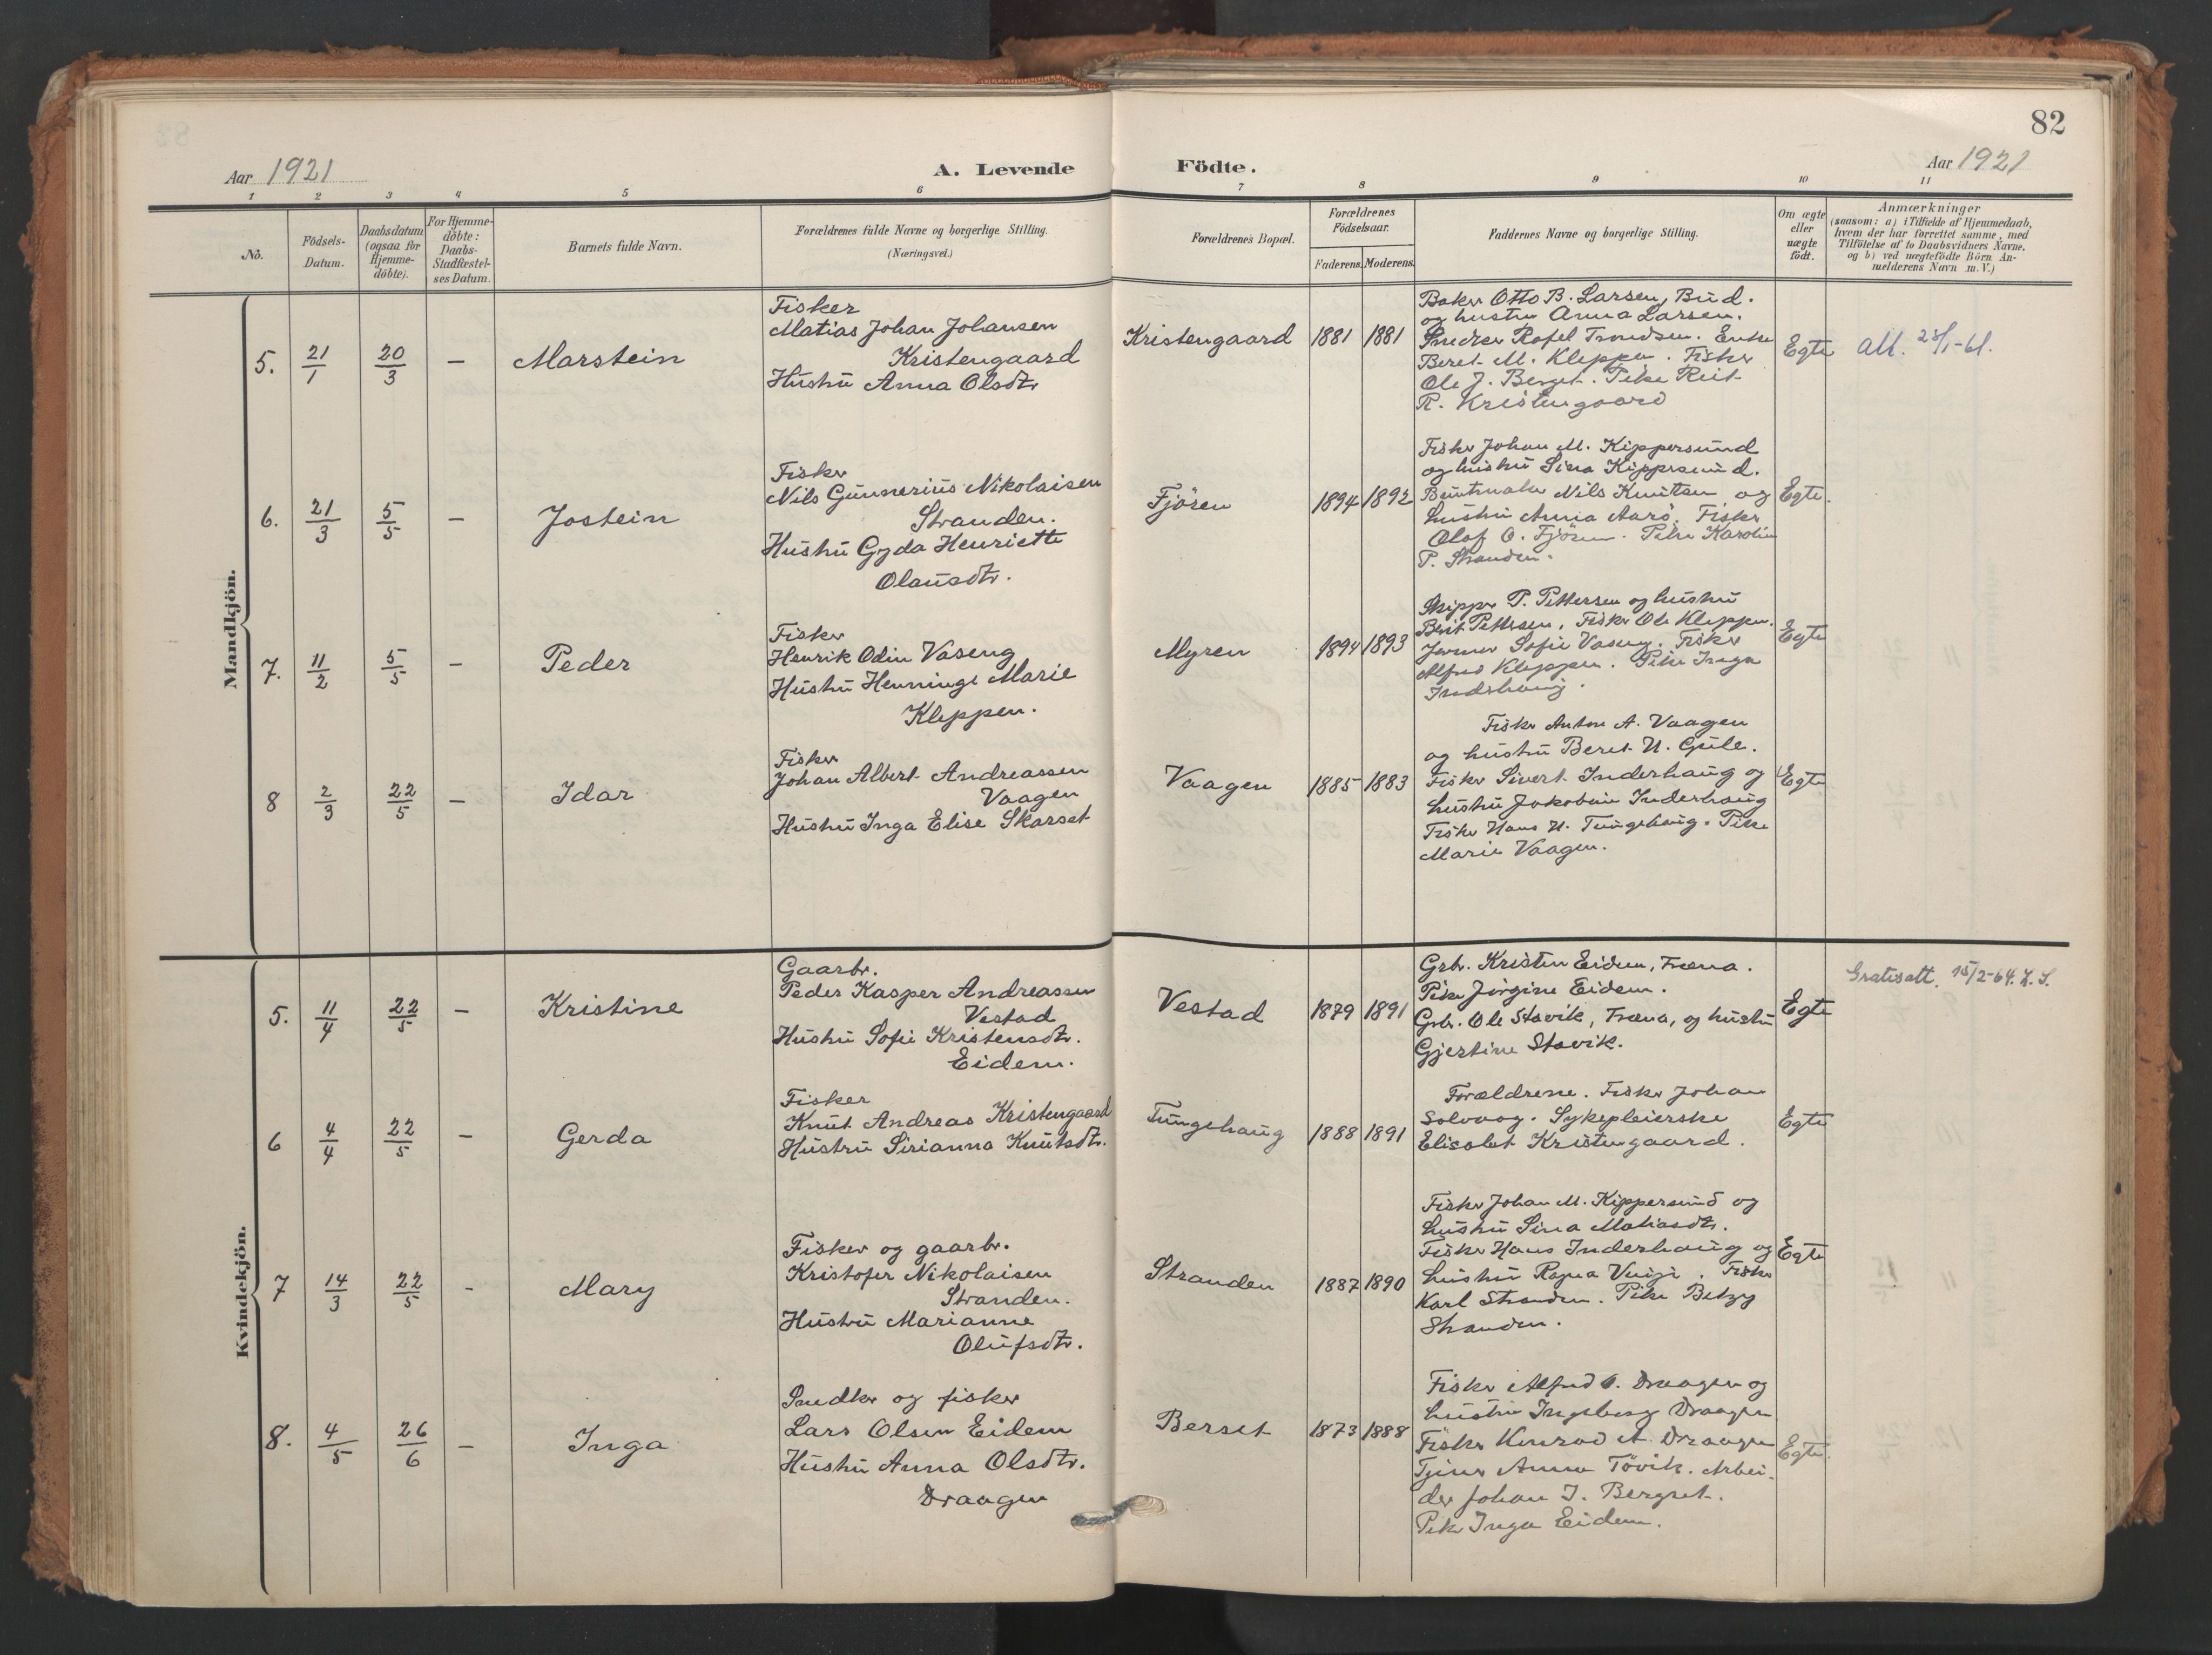 82
Aar 1921
A. Levende Födte.
Aar 1921
1 2 3 4 5 6 7 8 9 10 11
No.
Födsels-
Datum.
Daabsdatum
(ogsaa for
Hjemme-
döbte).
For Hjemme-
döbte:
Daabs-
Stadfæstel-
ses Datum.
Barnets fulde Navn.
Forældrenes fulde Navne og borgerlige Stilling.
(Næringsvei.)
Forældrenes Bopæl.
Forældrenes
Födselsaar.
Faderens. Moderens.
Faddernes Navne og borgerlige Stilling.
Om ægte
eller
uægte
födt.
Anmærkninger
(saasom: a) i Tilfælde af Hjemmedaab,
hvem der har forrettet samme, med
Tilföielse af to Daabsvidners Navne,
og b) ved uægtefödte Börn An-
melderens Navn m. V.)
Mandkjön.
5. 21/1 20/3 — Marstein
Fisker
Matias Johan Johansen
Kristengaard
Hustru Anna Olsdtr
Kristengaard 1881 1881
Baker Otto B. Larsen, Bud.
og hustru Anna Larsen.
Snedker Rafel Trondsen. Enke
Beret M. Kleppen. Fisker
Ole J. Berget. Pike
R. Kristengaard
Egte
att. 1-61.
6. 21/3 5/5 — Jostein
Fisker
Nils Gunnerius Nikolaisen
Stranden.
Hustru Gyda Henriette
Olausdtr.
Fjösen 1894 1892
Fisker Johan M. Kippersund
og hustru Sina Kippersund.
Nils Knutsen og
hustru Anna Aarö. Fisker
Olaf O. Fjösen. Pike Karoline
P. Stranden.
Egte.
7. 11/2 5/5 — Peder
Fisker
Henrik Odin Vaseng
Hustru Henninge Marie
Kleppen.
Myren 1894 1893
Skipper P. Pettersen og hustru
Berit Pettersen, Fisker Ole Kleppen.
Sofie Vaseng. Fisker
Alfred Kleppen. Pike Inga
Inderhaug.
Egte
8 2/3 22/5 — Idar
Fisker
Johan Albert Andreassen
Vaagen
Hustru Inga Elise Skarset
Vaagen 1885 1883
Fisker Anton A. Vaagen
og hustru Beret N. Gule.
Fisker Sivert Inderhaug og
hustru Jakobine Inderhaug
Fisker Hans N. Tungehaug. Pike
Marie Vaagen.
Egte
Kvindekjön.
5. 11/4 22/5 — Kristine
Gaarbr.
Peder Kasper Andreassen
Vestad
Hustru Sofie Kristensdtr.
Eidem.
Vestad 1879 1891
Grbr. Kristen Eidem, Fræna.
Pike Jörgine Eidem.
Grbr. Ole Stavik, Fræna, og hustru
Gjertine Stavik.
Egte
Gratisatt. 15/2-64. L. S.
6 4/4 22/5 — Gerda
Fisker
Knut Andreas Kristengaard
Hustru Sirianna Knutsdtr.
Tungehaug 1888 1891
Forældrene. Fisker Johan
Solvaag. Sykepleierske
Elisabet Kristengaard.
Egte
7 14/3 22/5 - Mary
Fisker og gaarbr.
Kristofer Nikolaisen
Stranden.
Hustru Marianne
Olufsdtr.
Stranden 1887 1890
Fisker Johan M. Kippersund og
hustru Sina Matiasdtr.
Fisker Hans Inderhaug og
hustru Ragna . Fisker
Karl Stranden. Pike Betzy
Stranden.
Egte
8. 4/5 26/6 — Inga
Snedker og fisker
Lars Olsen Eidem
Hustru Anna Olsdtr.
Draagen
Berset 1873 1888
Fisker Alfred O. Draagen og
hustru Ingeborg Draagen
Fisker Konrad A. Draagen
Tjener Anna Tövik. Arbei-
der Johan I. Bergset.
Pike Inga Eidem.
Egte.